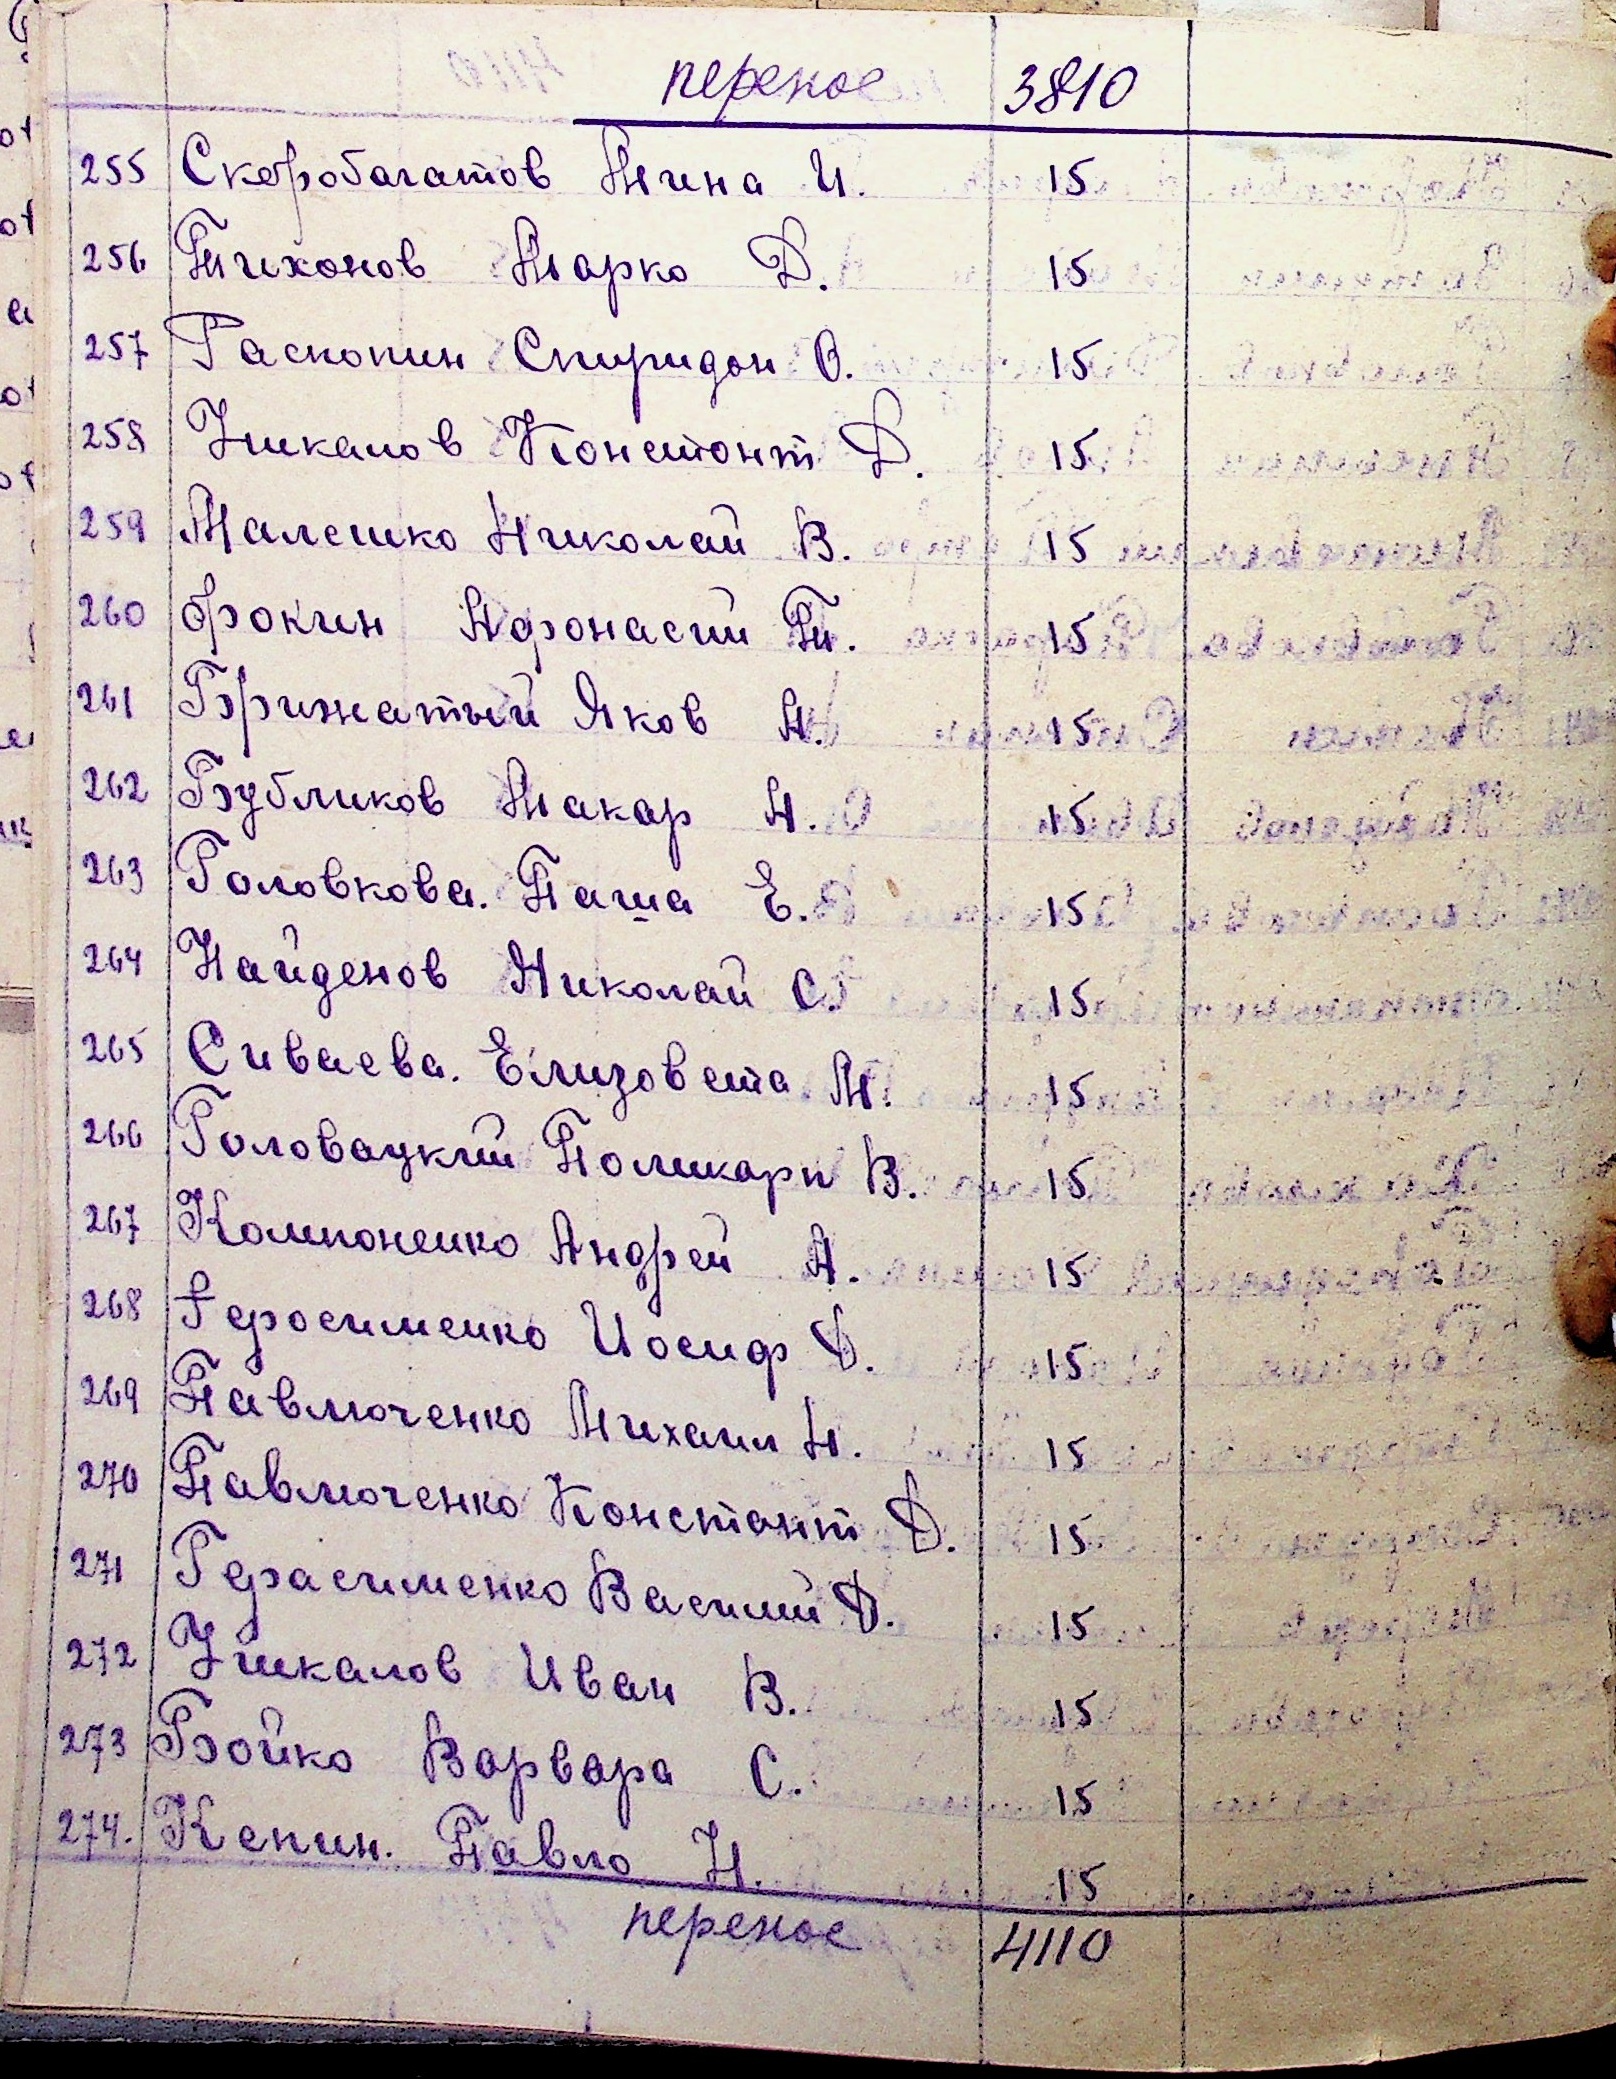 перенос 3810
255 Скоробогатов Мина И. 15
256 Тихонов Марко Д. 15
257 Раскопин Спиридон О. 15
258 Ушкалов Констонт Д. 15
259 Малешко Николай В. 15
260 Фокин Афонасий П. 15
261 Брижатый Яков А. 15
262 Бубликов Макар Н. 15
263 Головкова. Паша Е. 15
264 Найденов Николай С. 15
265 Сиваева. Елизовета М. 15
266 Головацкий Поликарп В. 15
267 Компонеико Андрей А. 15
268 Геросименко Иосиф Д. 15
269 Павлюченко Михаил Н. 15
270 Павлюченко Констант Д. 15
271 Герасименко Василий Д. 15
272 Ушкалов Иван В. 15
273 Бойко Варвара С. 15
274. Кепин. Павло Н. 15
перенос 4110